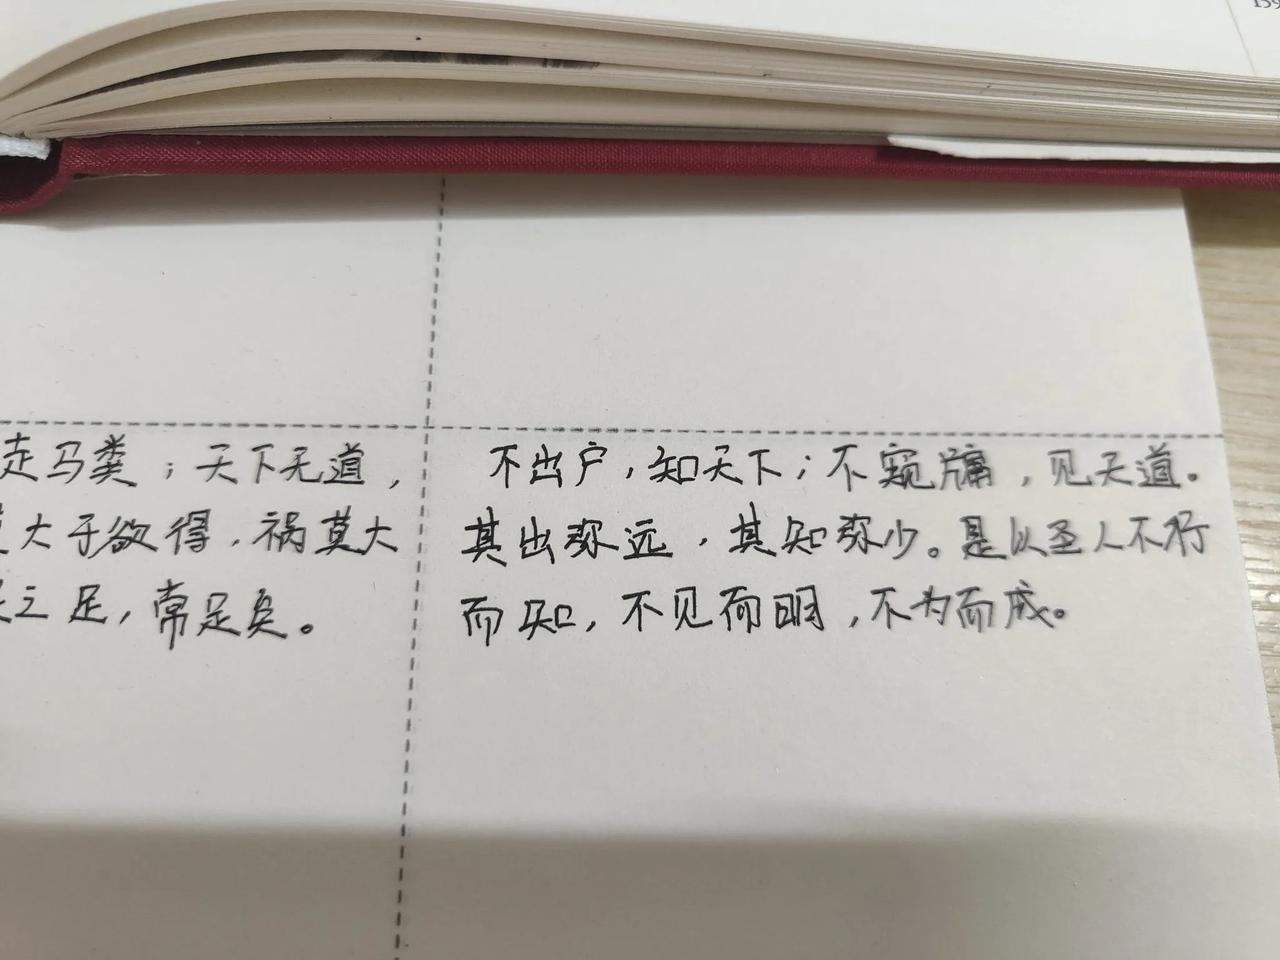 走马粪；天下无道，
大于欲得，祸莫大
之足，常足矣。
不出户，知天下；不窥牖，见天道。
其出弥远，其知弥少。是以圣人不行
而知，不见而明，不为而成。